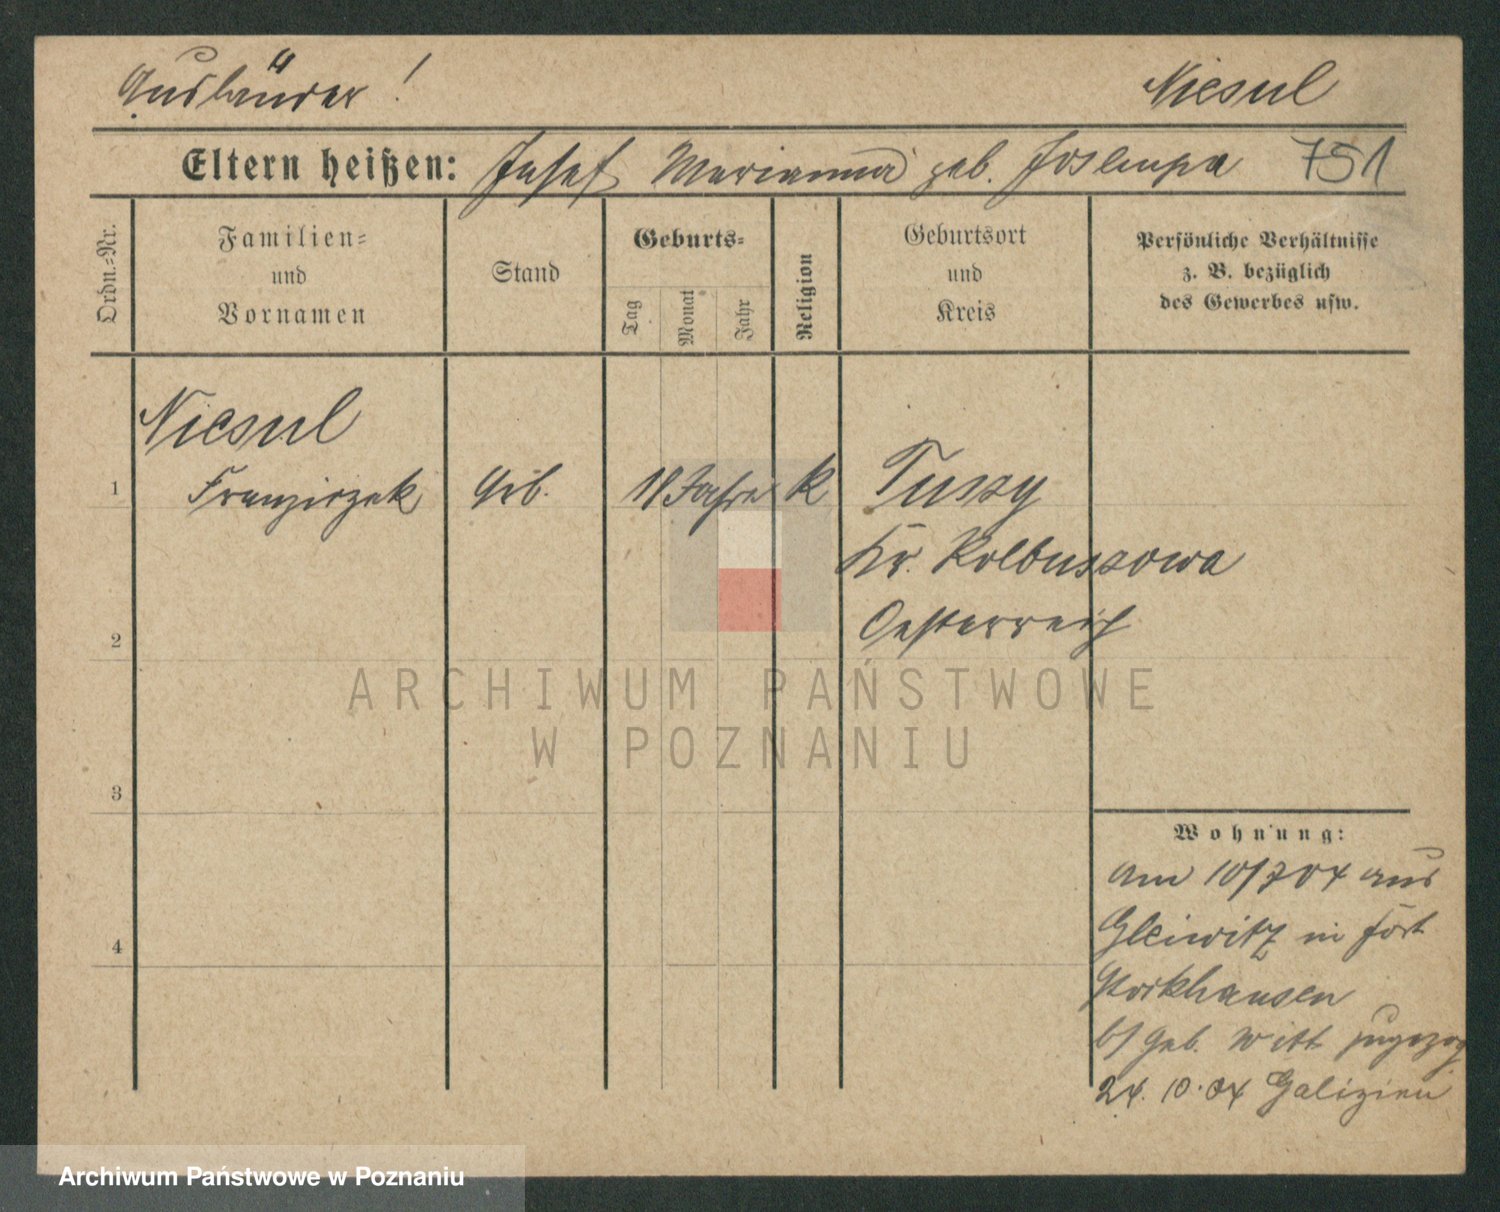 Ausländer! Niesul
Eltern heißen: Josef Marianna geb. 751
Ordn.=Nr.
Familien=
und
Vornamen
Stand
Geburts=
Tag
Monat
Jahr
Religion
Geburtsort
und
Kreis
Persönliche Verhältnisse
z. B. bezüglich
des Gewerbes usw.
Niesul
1 Franziszek Arb. 18 Jahre k
Kr. Kolbuszowa
Oesterreich
2
3
4
Wohnung:
am 10/7 04 aus
Gleiwitz in Fort
b/ Geb. Witt zugezog.
24. 10. 04 Galizien
ARCHIWUM PAŃSTWOWE
W POZNANIU
Archiwum Państwowe w Poznaniu